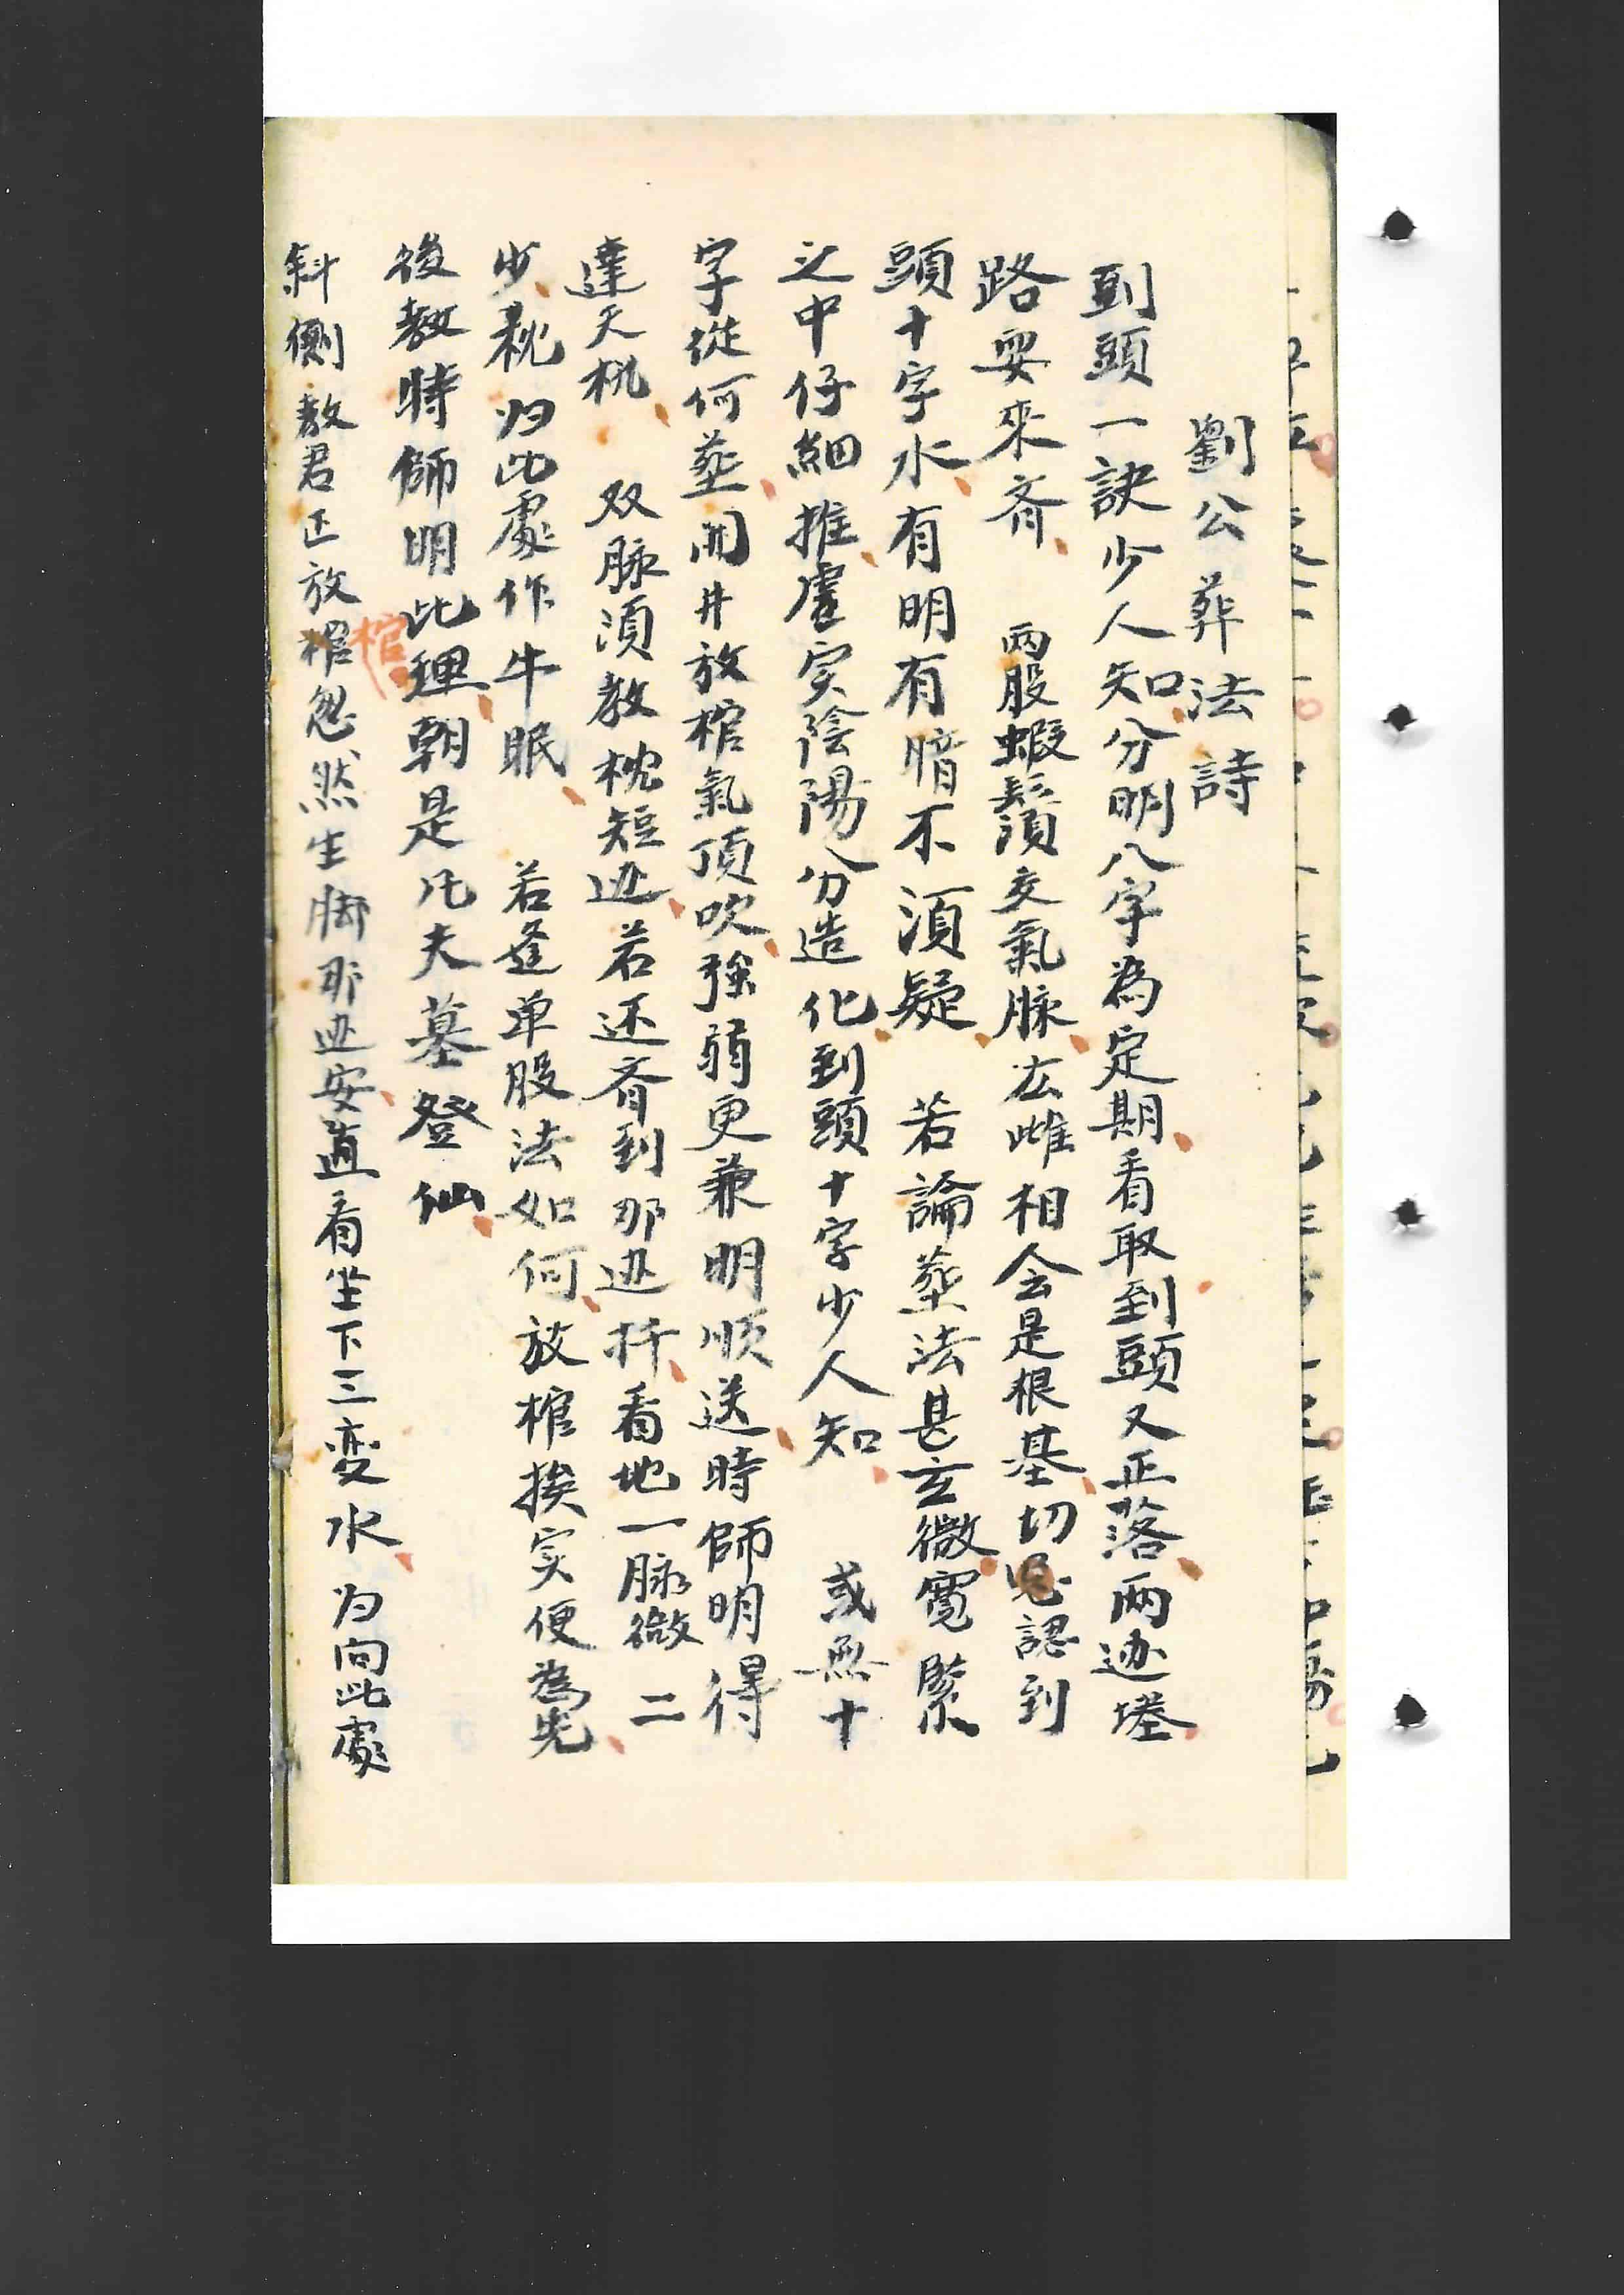 劉公葬法詩
到頭一訣少人知分明八字為定期看取到頭又正落两边墶
路要來齊 两股蝦鬚須交氣脉雌相会是根基切忌認到
頭十字水有明有暗不須疑 若論塟法甚玄微寬緊
之中仔細推虛实陰陽分造化到頭十字少人知 或無十
字從何塟開井放棺氣頂吹強弱更兼明順送時師明得
達天机 双脉須教枕短边若还齐到那边扦看地一脉微 二
少税归此處作牛眠 若逢单股法如何放棺挨实便為先
後教時師明此理朝是凡夫墓登仙
斜側教君正放棺忽然生脚那边安直看坐下三变水为向此處
棺